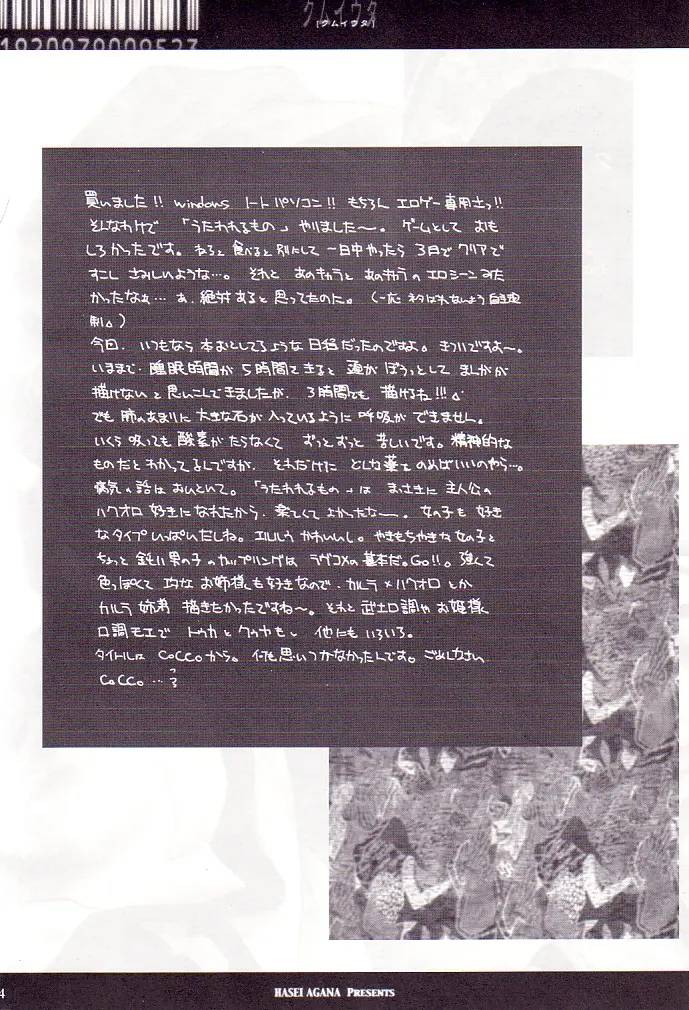 クムイウタ
[クムイウタ]
1920979009523
買いました!! windows ノートパソコン!! もちろん エロゲー専用士っ!!
そんなわけで 「うたわれるもの」 やりました〜。 ゲームとして おも
しろかったです。 ねると 食べると 別にして 一日中やったら 3日で クリアで
すこし さみしいような…。 それと あのキャラと あのキャラの エロシーン みた
かったなぁ… あ、絶対あると思ってたのた。 (一応 ネタばれないよう 自主規
制。)
今回、いつもなら 本おとしてるような 日程だったのですよ。 きついですよ〜。
いままで、睡眠時間が 5時間できると 頭が ぼうっとして まんがが
描けない と思いこんできましたが、 3時間でも 描けるね!!!
でも 肺のあまりに 大きな石が 入っているように 呼吸が できません。
いくら 吸っても 酸素が たらなくて ずっとずっと 苦しいです。精神的な
ものだと わかってるんですが、 それだけに どんな薬を のめばいいのやら…。
病気の話は おいといて。「うたわれるもの」は まっさきに 主人公の
ハクオロ 好きに なれたから、 楽しくて よかったな〜。 女の子も 好き
なタイプ いっぱいだしね。 エルルゥ かわいいし。 やきもちやきな 女の子と
ちょっと 鈍い 男の子の カップリングは ラヴコメの 基本だ。Go!!。 強くて
色っぽくて 巧みな お姉様も 好きなので、 カルラ×ハクオロ とか
カルラ 姉弟 描きたかったですね〜。 それと 武士口調や お姫様
口調モエで トウカと クゥヤも。 他にも いろいろ。
タイトルは COCCOから。 何も思いつかなかったんです。ごめんなさい
COCCO…
4
HASEI AGANA PRESENTS